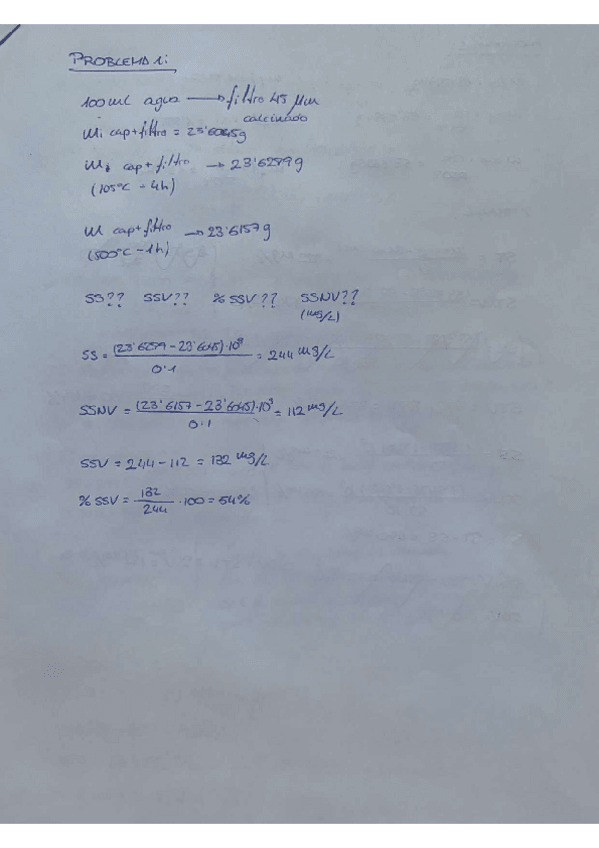 PROBLEMA 1:
100 ml agua → filtro 45 μm
calcinado
mi cap+filtro = 23'6045g
m cap + filtro → 23'6289 g
(105ºC - 4h)
m cap+filtro → 23'6157g
(500ºC - 1h)
SS?? SSV?? % SSV?? SSNV??
(mg/L)
SS = (23'6289 - 23'6045)·10³ / 0'1 = 244 mg/L
SSNV = (23'6157 - 23'6045)·10³ / 0'1 = 112 mg/L
SSV = 244 - 112 = 132 mg/L
% SSV = 132 / 244 · 100 = 54%